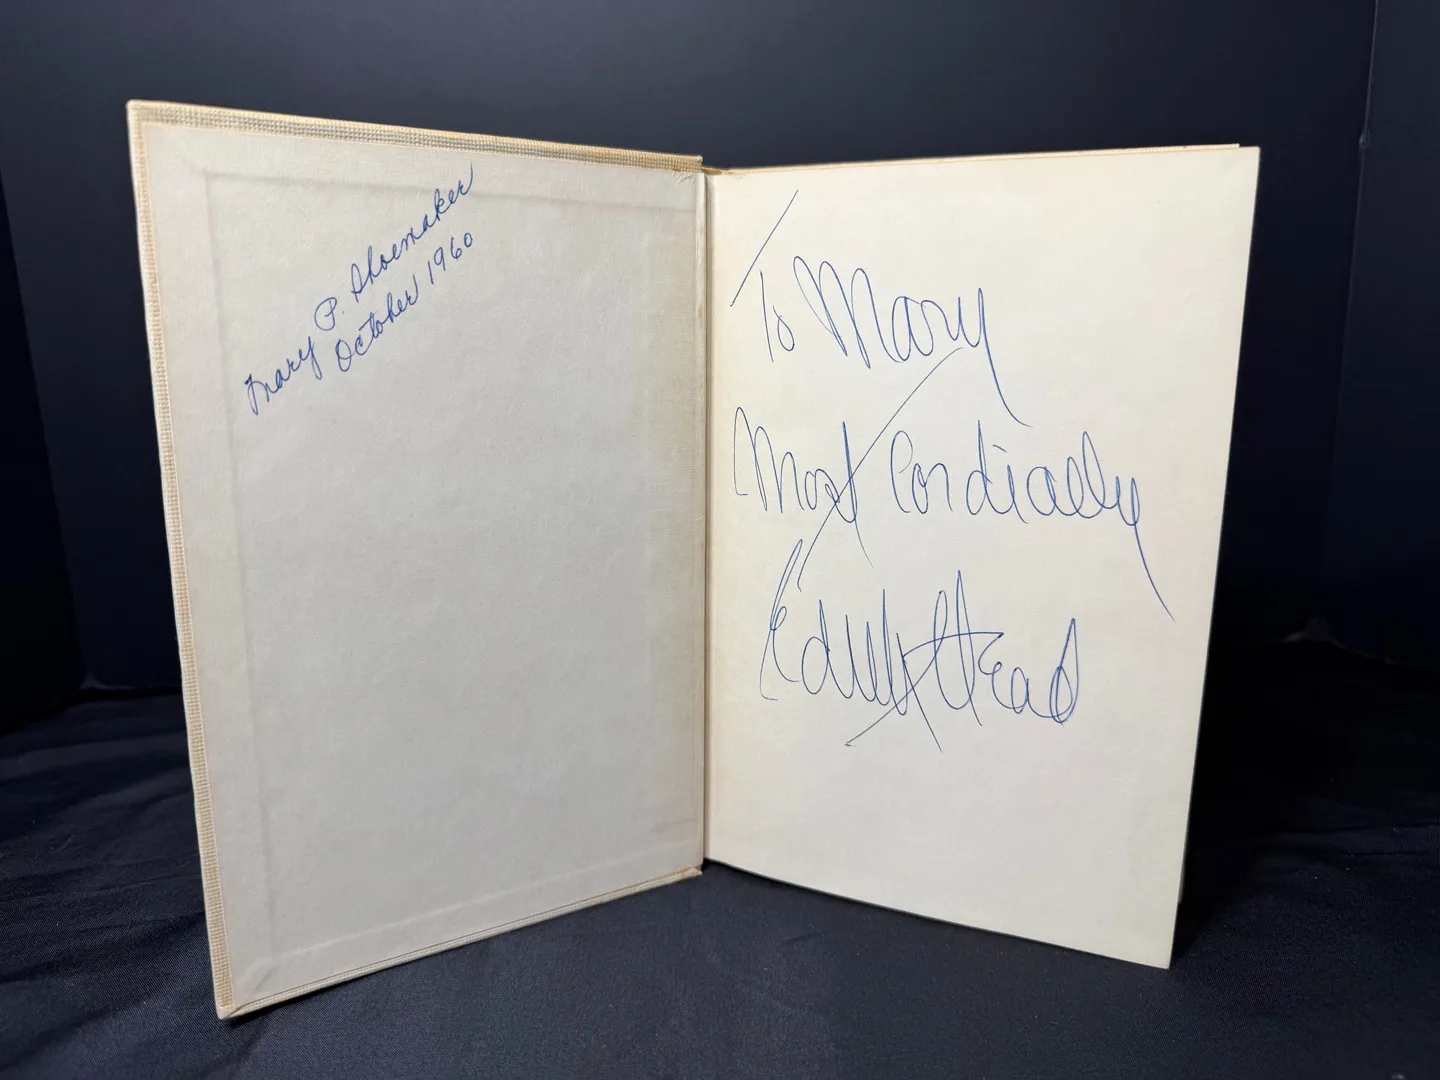 Mary P. Shoemaker
October 1960
To Mary
Most Cordially
Edith Head